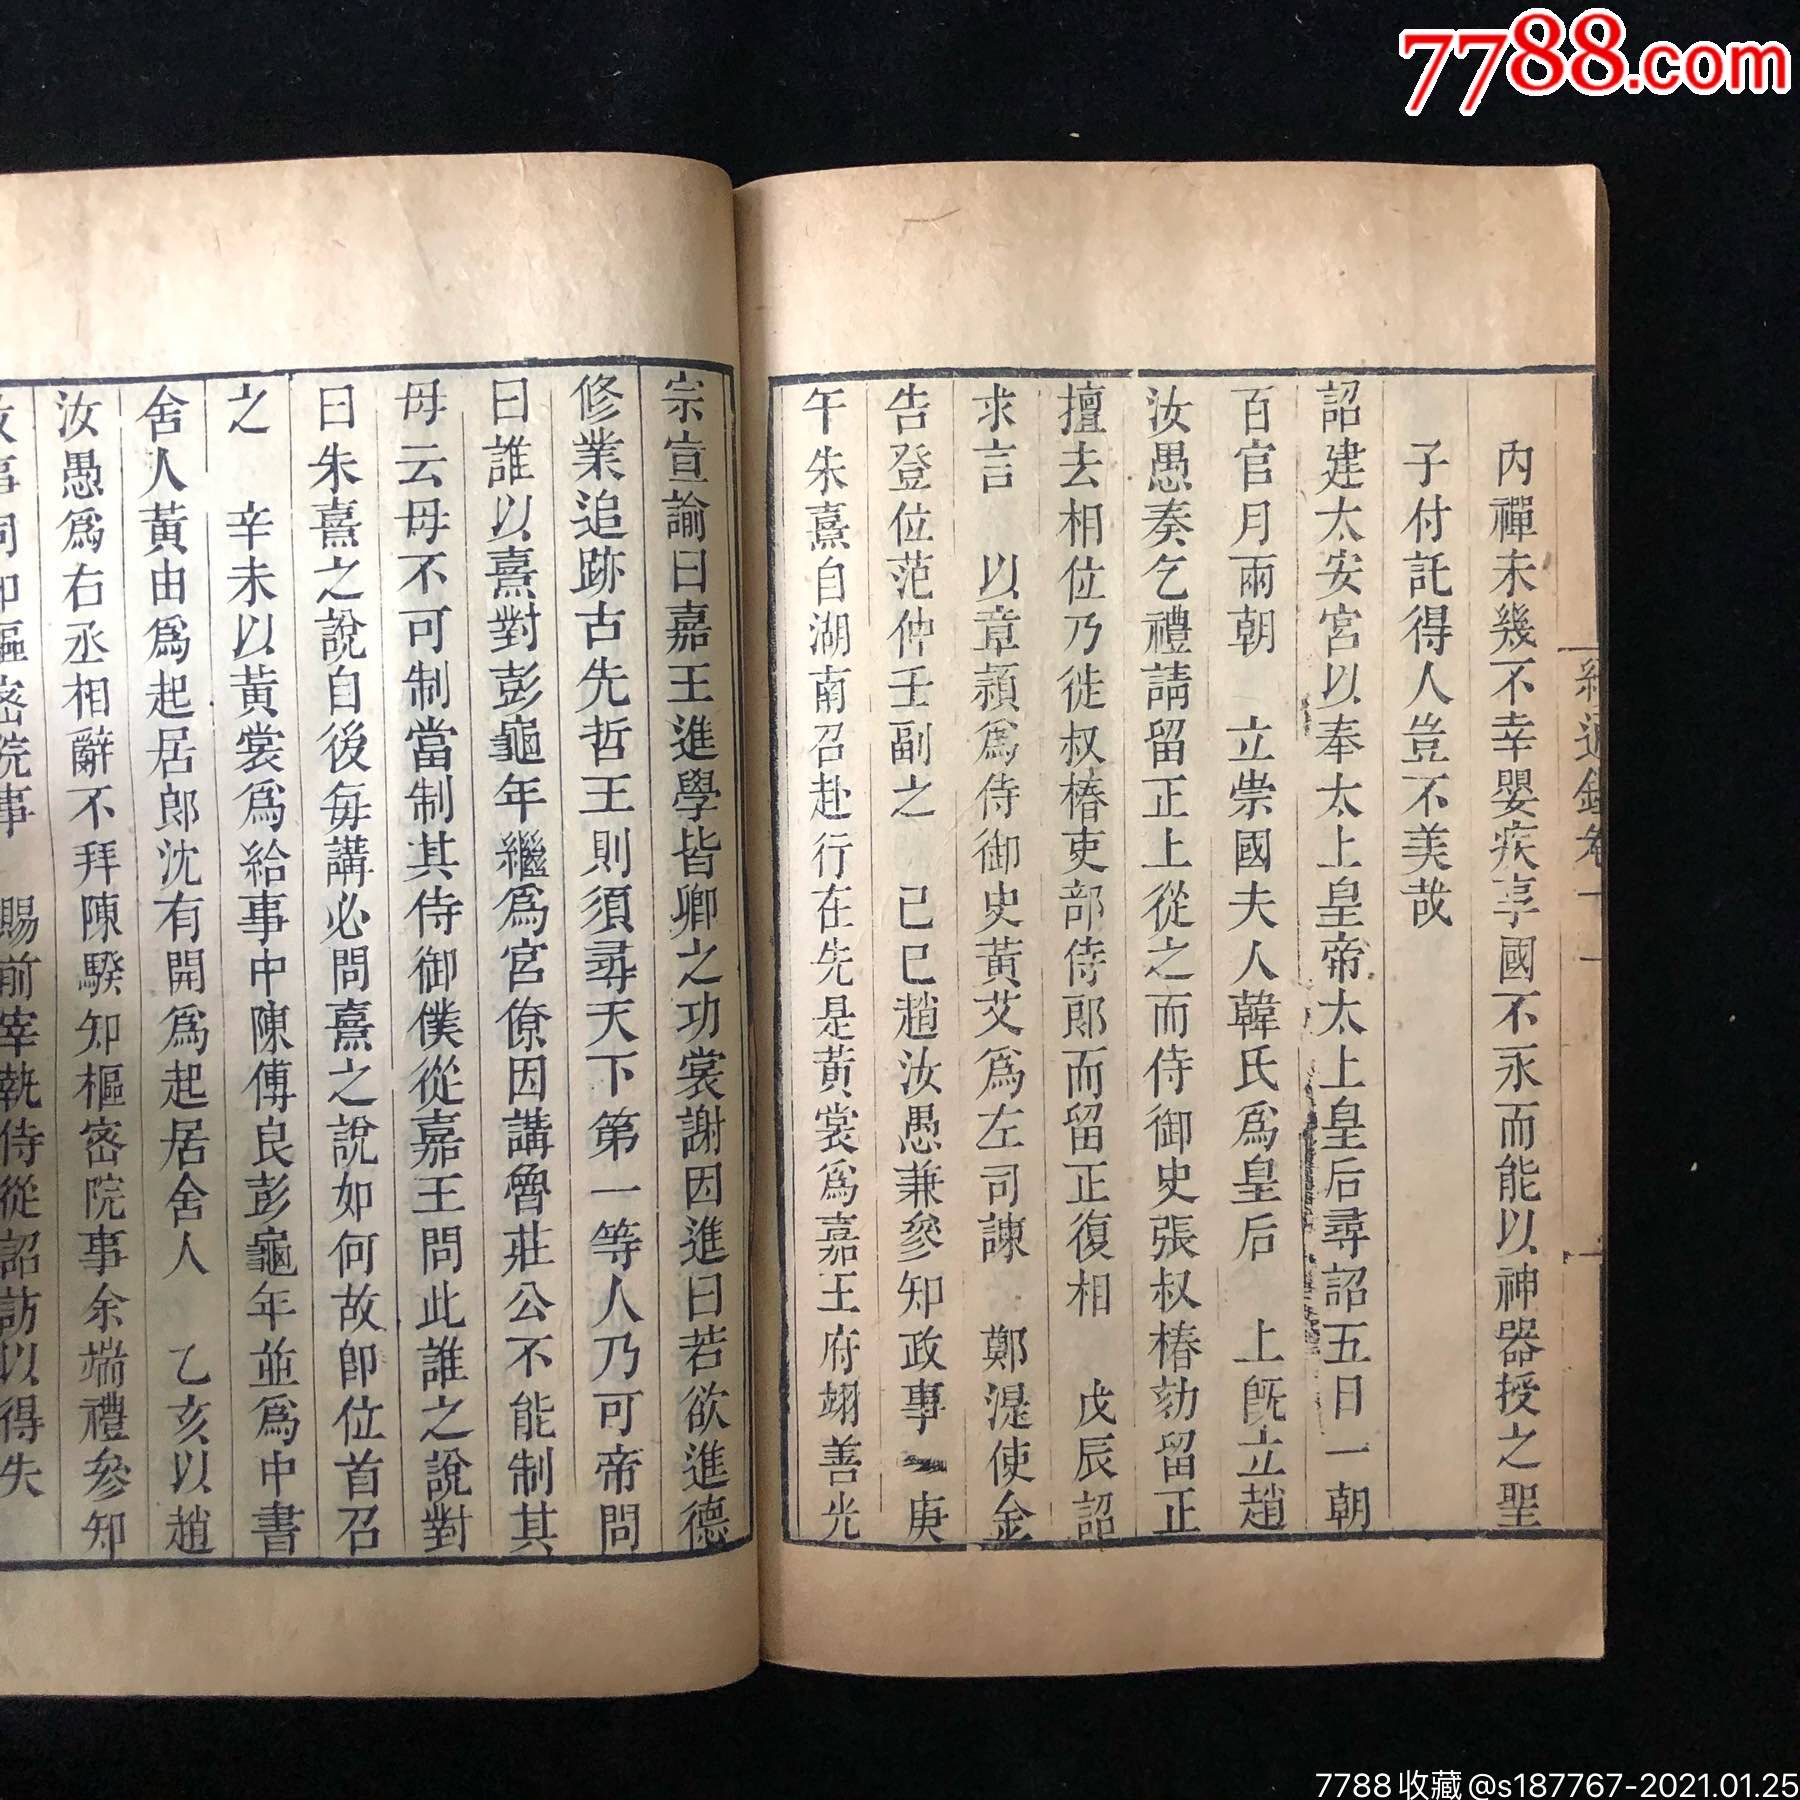 7788.com
內禪未幾不幸嬰疾享國不永而能以神器授之聖
子付託得人豈不美哉
詔建太安宮以奉太上皇帝太上皇后尋詔五日一朝
百官月兩朝　立崇國夫人韓氏爲皇后　上旣立趙
汝愚奏乞禮請留正上從之而侍御史張叔椿劾留正
擅去相位乃徙叔椿吏部侍郎而留正復相　戊辰詔
求言　以章潁爲侍御史黃艾爲左司諫　鄭湜使金
告登位范仲壬副之　己巳趙汝愚兼參知政事　庚
午朱熹自湖南召赴行在先是黃裳爲嘉王府翊善光
宗宣諭曰嘉王進學皆卿之功裳謝因進曰若欲進德
修業追跡古先哲王則須尋天下第一等人乃可帝問
曰誰以熹對彭龜年繼爲宮僚因講魯莊公不能制其
母云母不可制當制其侍御僕從嘉王問此誰之說對
曰朱熹之說自後每講必問熹之說如何故即位首召
之　辛未以黃裳爲給事中陳傅良彭龜年並爲中書
舍人黃由爲起居郎沈有開爲起居舍人　乙亥以趙
汝愚爲右丞相辭不拜陳騤知樞密院事余端禮參知
政事同知樞密院事　賜前宰執侍從詔訪以得失
7788收藏@s187767-2021.01.25